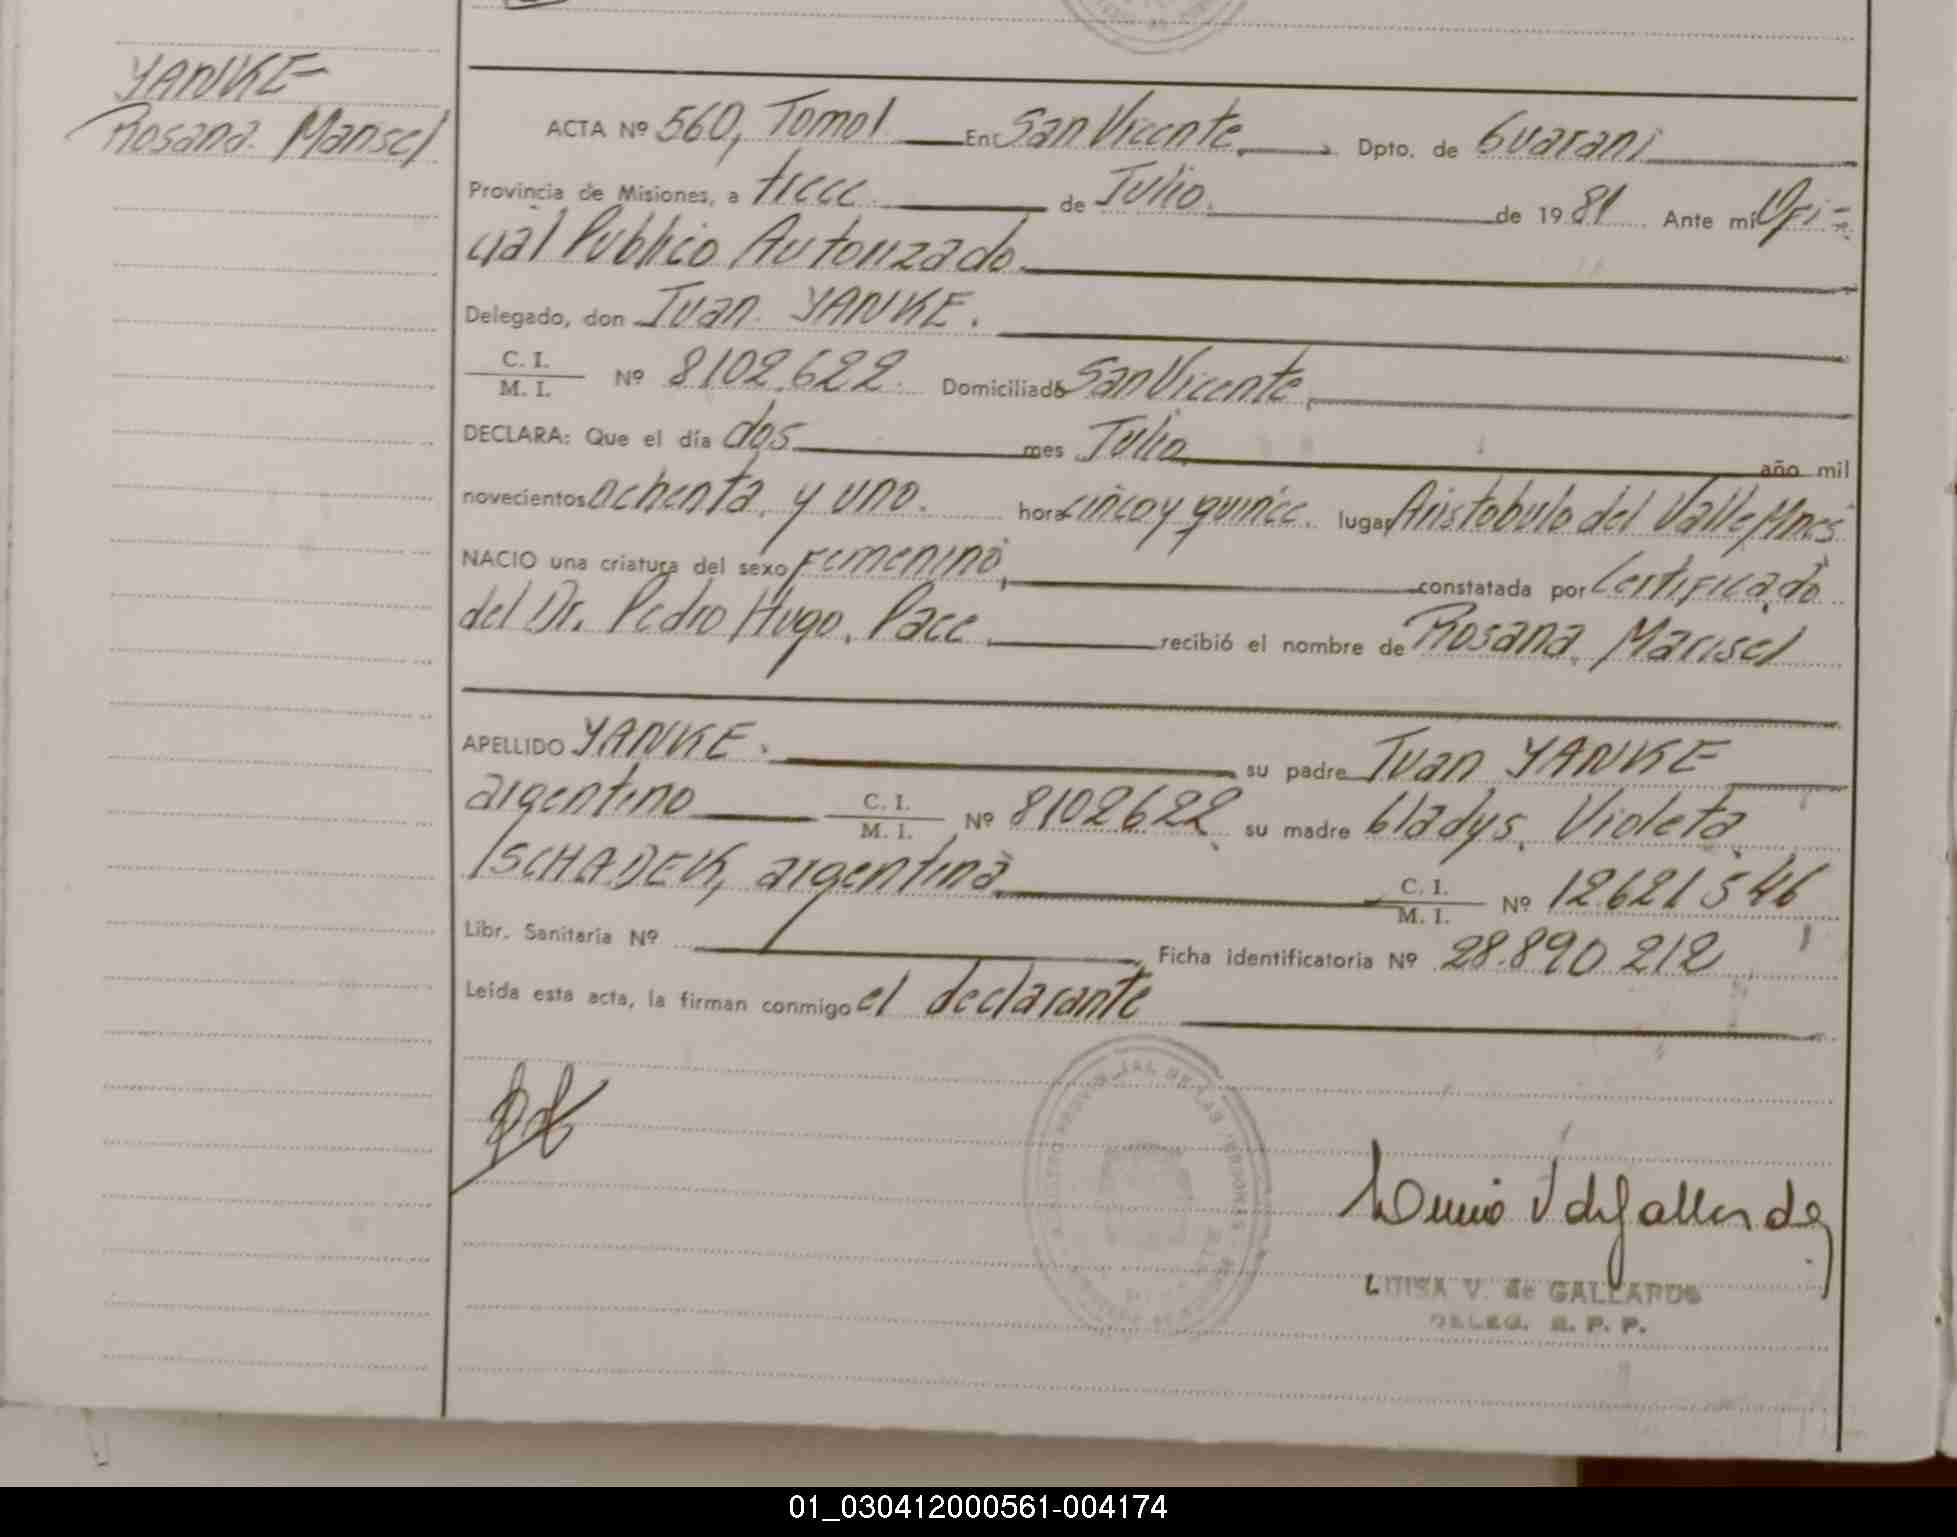 YANKE
Rosana Marisel
ACTA Nº 560, Tomo I En San Vicente, Dpto. de Guaraní
Provincia de Misiones, a trece de Julio de 1981 Ante mí Ofi=
cial Público Autorizado
Delegado, don Juan YANKE.
C. I.
M. I. Nº 8102.622. Domiciliado San Vicente,
DECLARA: Que el día dos mes Julio año mil
novecientos ochenta y uno. hora cinco y quince. lugar Aristobulo del Valle Mnes
NACIO una criatura del sexo Femenino, constatada por Certificado
del Dr. Pedro Hugo Pace recibió el nombre de Rosana Marisel
APELLIDO YANKE. su padre Juan YANKE
argentino C. I.
M. I. Nº 8102622 su madre Gladys Violeta
SCHADEK, argentina C. I.
M. I. Nº 12621546
Libr. Sanitaria Nº Ficha identificatoria Nº 28.890.212
Leída esta acta, la firman conmigo el declarante
LUISA V. de GALLARDO
DELEG. R. P. P.
01_030412000561-004174